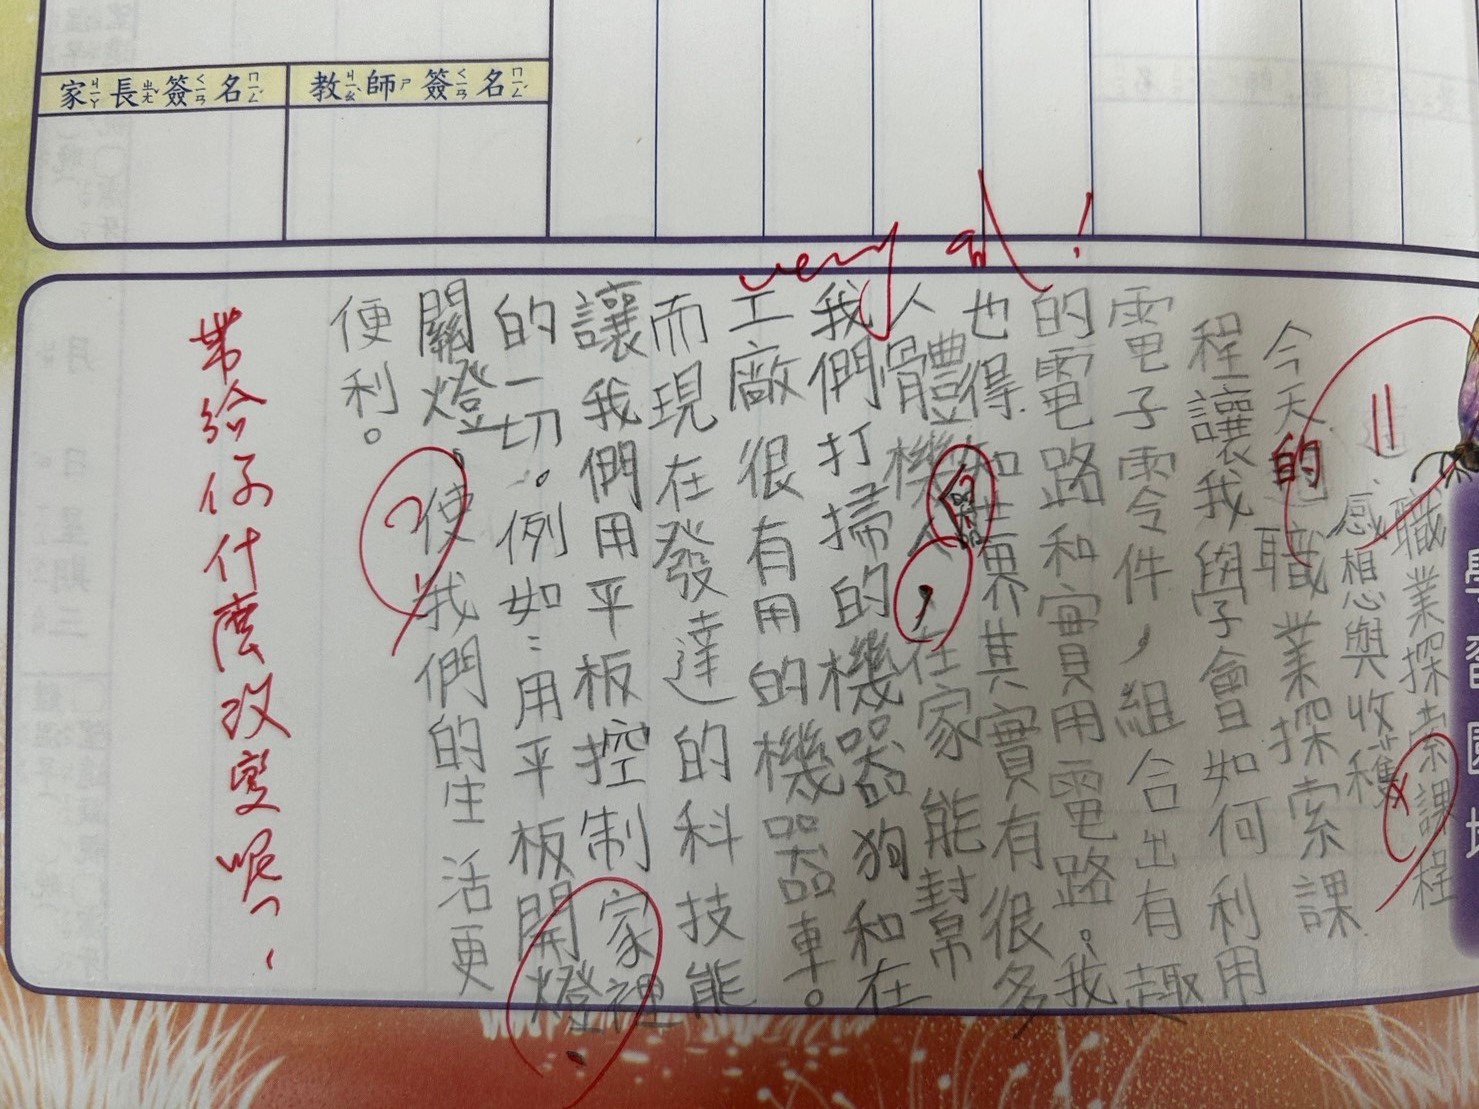 家長簽名
教師簽名
very good!
職業探索課程
感想與收穫
今天的職業探索課
程讓我與學會如何利用
電子零件，組合出有趣
的電路和實用電路。我
也得知世界其實有很多
人體機器人，在家能幫
我們打掃的機器狗和在
工廠很有用的機器車。
而現在發達的科技能
讓我們用平板控制家裡
的一切。例如：用平板開燈、
關燈。使我們的生活更
便利。
帶給你什麼改變呢？
學習園地